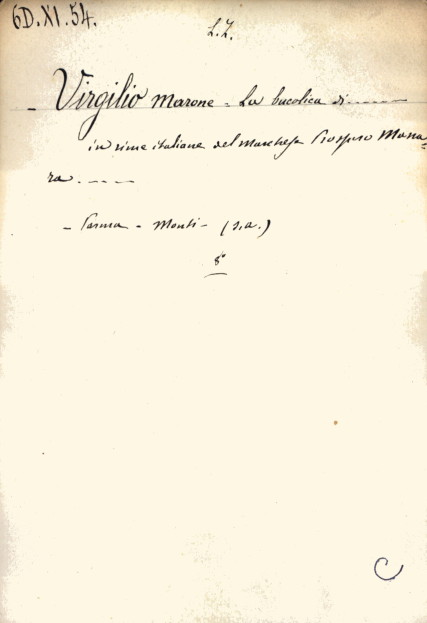 6D.XI.54.
L.Z.
- Virgilio Marone - La bucolica di ------
in rime italiane del Marchese Prospero Mana=
ra ----
- Parma - Monti - (s.a.)
8°
C